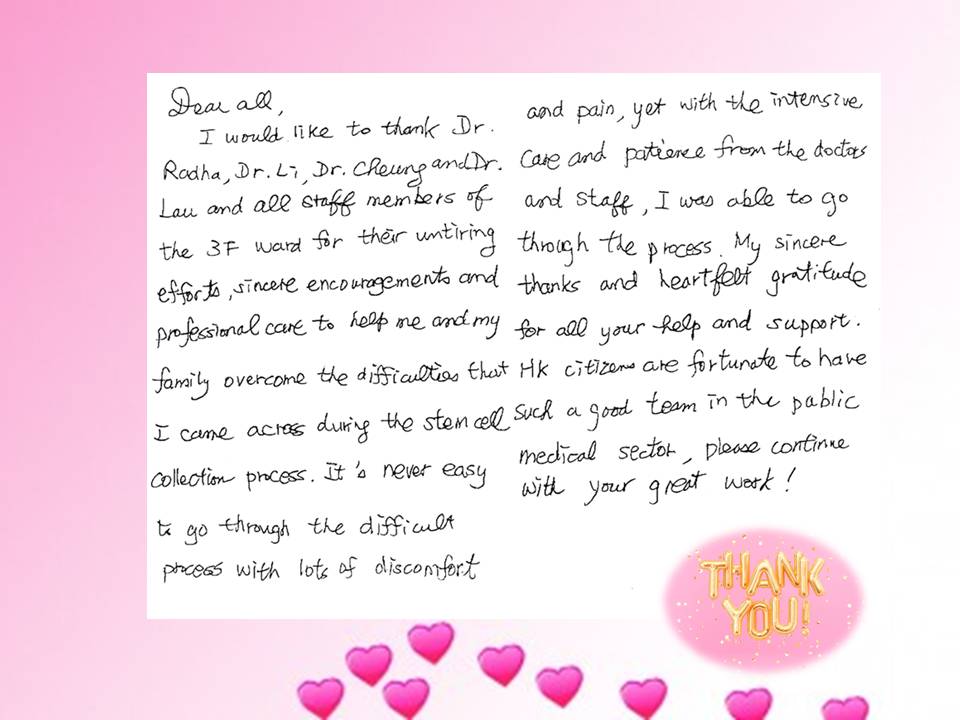 Dear all,
I would like to thank Dr.
Radha, Dr. Li, Dr. Cheung and Dr.
Lau and all staff members of
the 3F ward for their untiring
efforts, sincere encouragements and
professional care to help me and my
family overcome the difficulties that
I came across during the stem cell
collection process. It's never easy
to go through the difficult
process with lots of discomfort
and pain, yet with the intensive
care and patience from the doctors
and staff, I was able to go
through the process. My sincere
thanks and heartfelt gratitude
for all your help and support.
HK citizens are fortunate to have
such a good team in the public
medical sector, please continue
with your great work!
THANK
YOU!